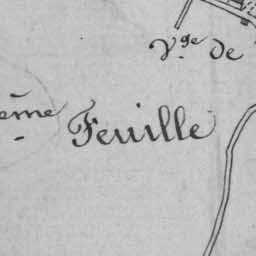 V.ge de
eme Feuille